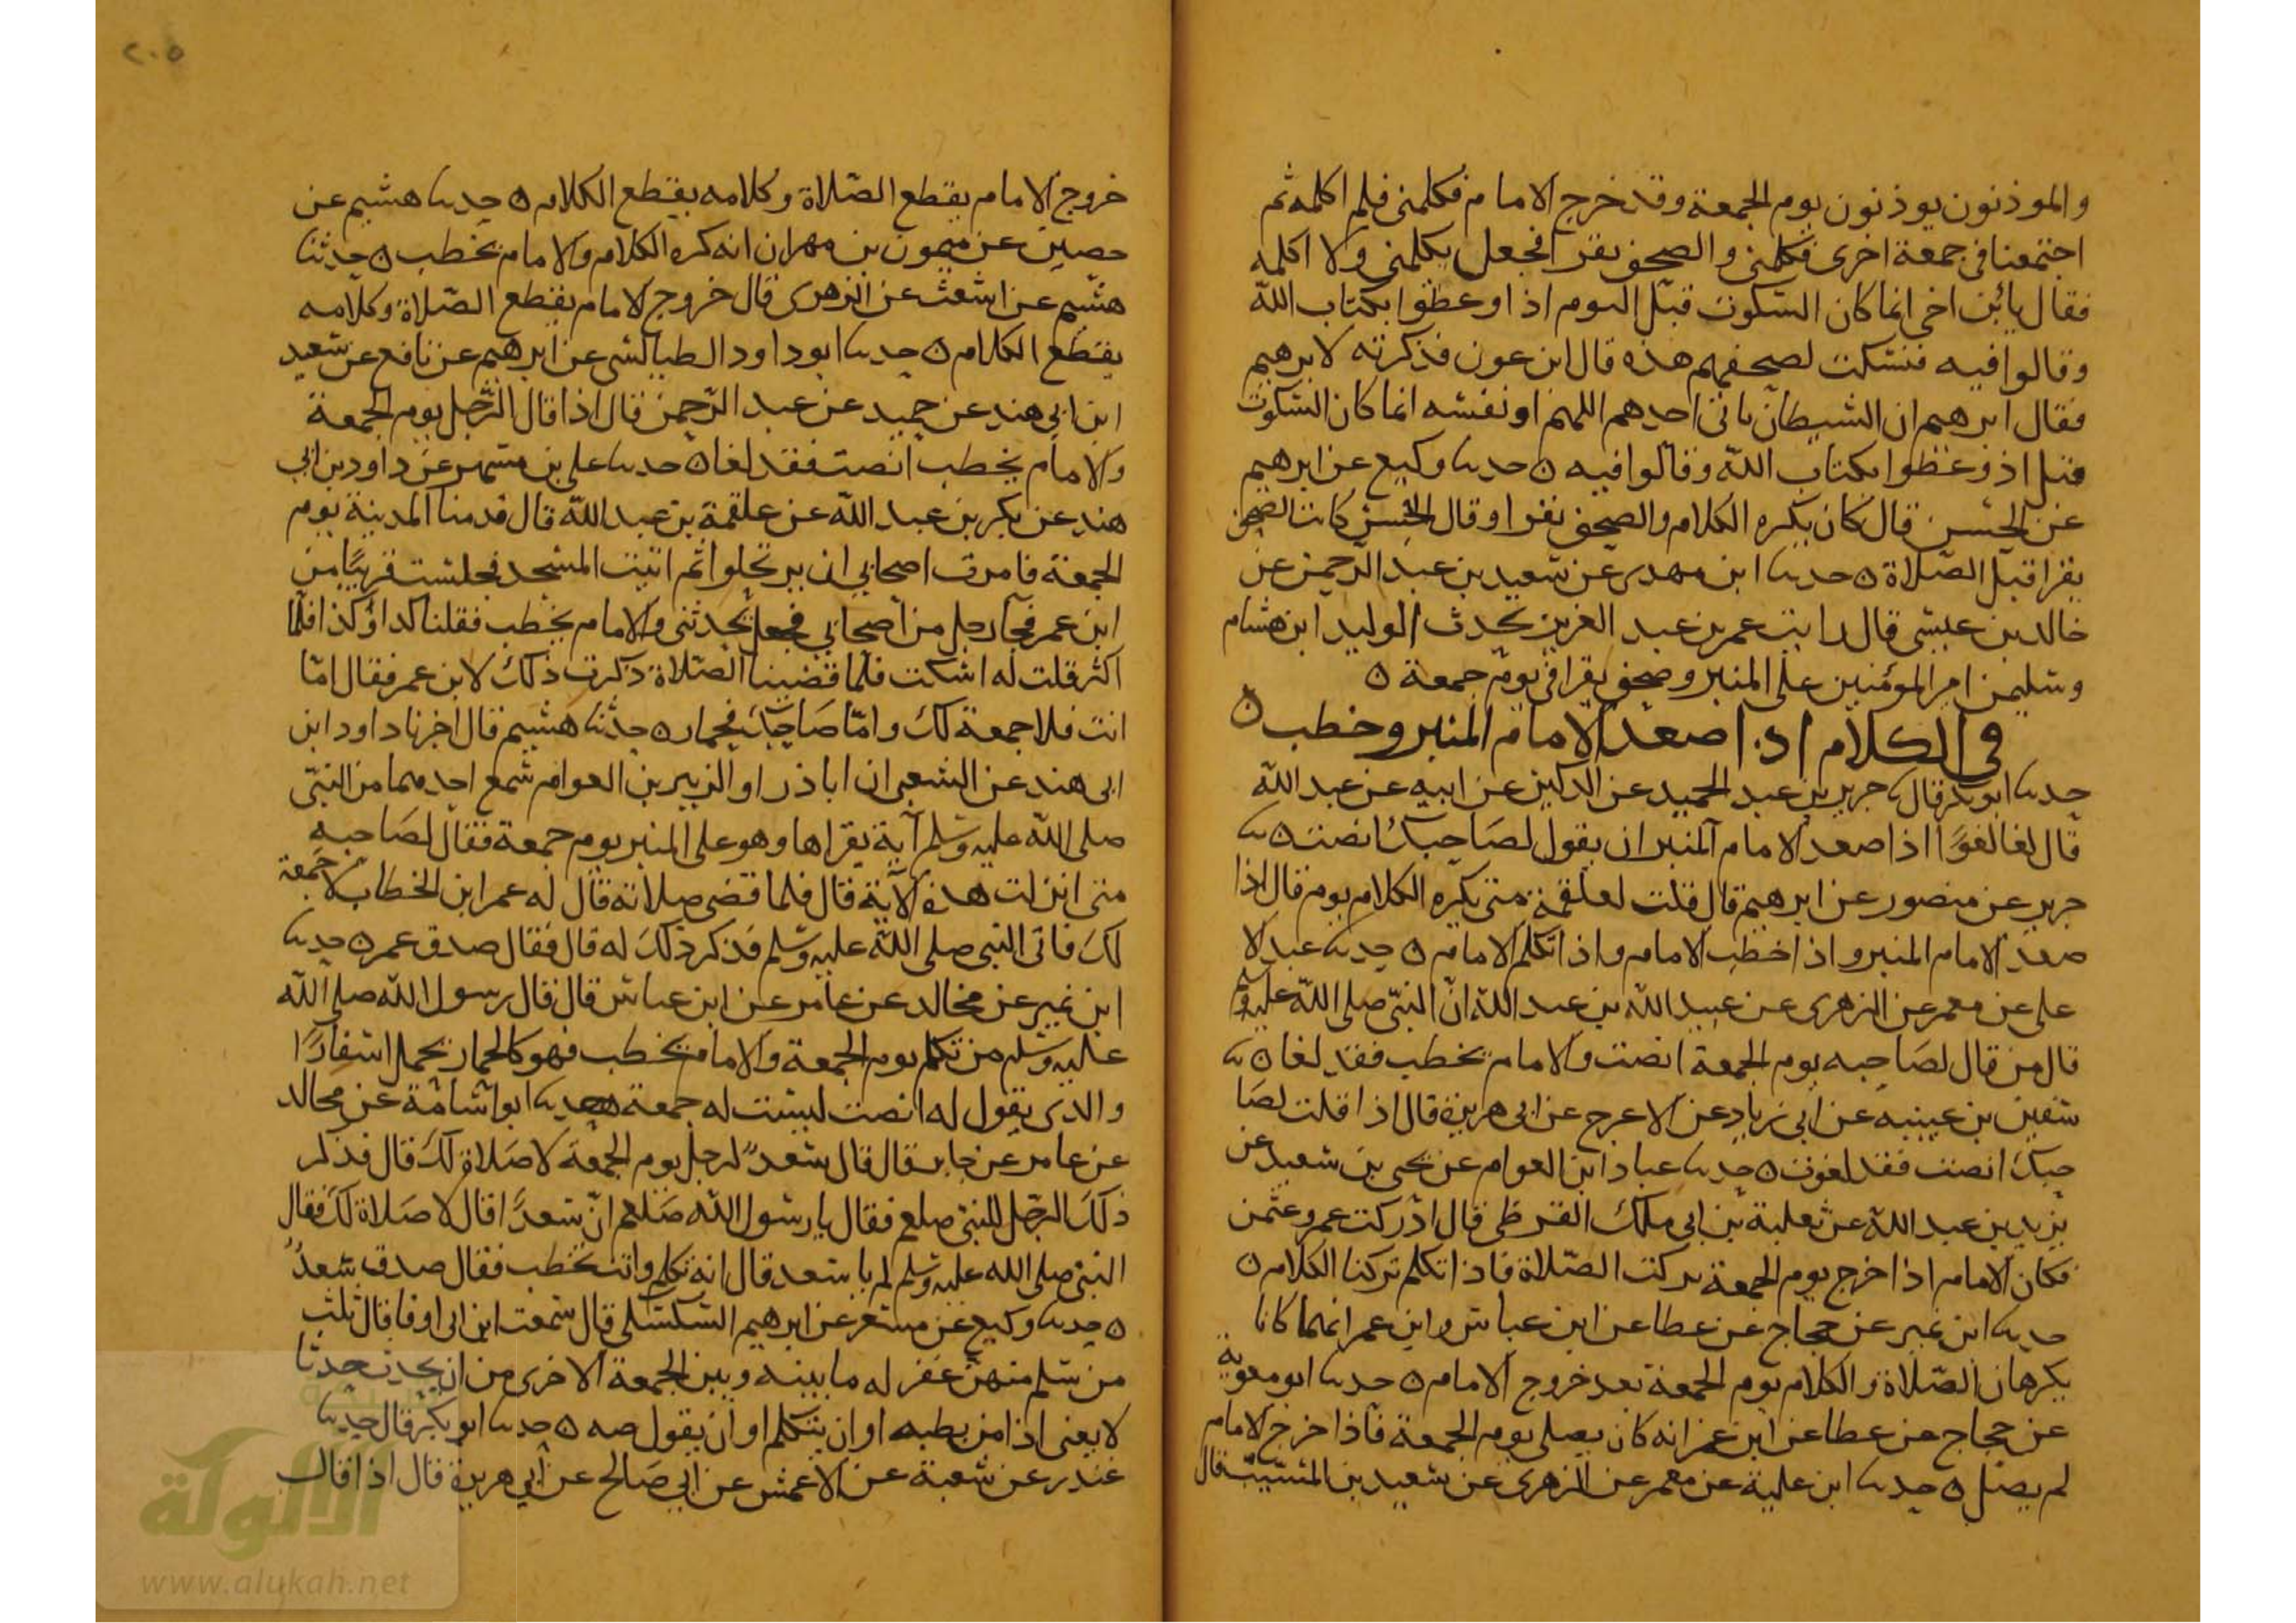 والموذنون يوذنون يوم الجمعة وقد خرج الامام فكلمنى فلم اكلمه ثم
اجتمعنا فى جمعة اخرى فكلمنى والصحف تقرا فجعل يكلمنى ولا اكلمه
فقال يا ابن اخى انما كان السكوت قبل اليوم اذا وعظوا بكتاب الله
وقالوا فيه فنسكت لصحفهم هذه قال ابن عون فذكرته لابرهيم
فقال ابرهيم ان الشيطان ياتى احدهم اونفسه انما كان السكوت
قبل اذ وعظوا بكتاب الله وقالوا فيه ه حدثنا وكيع عن ابرهيم
عن الحسن قال كان يكره الكلام والصحف تقرا وقال الحسن كانت الصحف
تقرا قبل الصلاة ه حدثنا ابن مهدى عن سعيد بن عبد الرحمن عن
خالد بن عيسى قال رايت عمر بن عبد العزيز يحدث الوليد ابن هشام
وسليمن امير المؤمنين على المنبر وصحف تقرا فى يوم جمعة ه
فى الكلام اذا صعد الامام المنبر وخطب ه
حدثنا ابو بكر قال ثنا جرير بن عبد الحميد عن الركين عن ابيه عن عبد الله
قال لغا لغوًا اذا صعد الامام المنبر ان يقول لصاحبك انصت ه ثنا
جرير عن منصور عن ابرهيم قال قلت لعلقمة متى يكره الكلام يوم قال اذا
صعد الامام المنبر و اذا خطب الامام واذا تكلم الامام ه حدثنا عبد الا
على عن معمر عن الزهرى عن عبيد الله بن عبد الله ان النبى صلى الله عليه وسلم
قال من قال لصاحبه يوم الجمعة انصت والامام يخطب فقد لغا ه ثنا
سفين بن عيينه عن ابى زياد عن الاعرج عن ابى هريرة قال اذا قلت لصا
حبك انصت فقد لغوت ه حدثنا عباد ابن العوام عن يحيى بن سعيد عن
يزيد بن عبد الله عن ثعلبة بن ابى ملك القرظى قال ادركت عمر وعثمن
فكان الامام اذا خرج يوم الجمعة تركت الصلاة فاذا تكلم تركنا الكلام ه
حدثنا ابن نمير عن حجاج عن عطا عن ابن عباس وابن عمر انهما كانا
يكرهان الصلاة والكلام يوم الجمعة بعد خروج الامام ه حدثنا ابو معوية
عن حجاج عن عطا عن ابن عمر انه كان يصلى يوم الجمعة فاذا خرج الامام
لم يصل ه حدثنا ابن علية عن معمر عن الزهرى عن سعيد بن المسيب قال
٢٠٥
خروج الامام يقطع الصلاة وكلامه يقطع الكلام ه حدثنا هشيم عن
حصين عن ميمون بن مهران انه كره الكلام والامام يخطب ه حدثنا
هشيم عن اشعث عن الزهرى قال خروج الامام يقطع الصلاة وكلامه
يقطع الكلام ه حدثنا ابو داود الطيالسى عن ابرهيم عن نافع عن سعيد
ابن ابى هند عن حميد عن عبد الرحمن قال اذا قال الرجل يوم الجمعة
والامام يخطب انصت فقد لغا ه حدثنا على بن مسهر عن داود بن ابى
هند عن بكر بن عبد الله عن علقمة بن عبد الله قال قدمنا المدينة يوم
الجمعة فامرت اصحابى ان يرتحلوا ثم اتيت المسجد فجلست قريبًا من
ابن عمر فجا رجل من اصحابى فجعل يحدثنى والامام يخطب فقلنا كذا وكذا فلما
اكثر قلت له اسكت فلما قضينا الصلاة ذكرت ذلك لابن عمر فقال امّا
انت فلا جمعة لك وامّا صاحبك فحمار ه حدثنا هشيم قال اخبرنا داود ابن
ابى هند عن الشعبى ان اباذر او الزبير بن العوام سمع احدهما من النبى
صلى الله عليه وسلم آية يقراها وهو على المنبر يوم جمعة فقال لصاحبه
متى انزلت هذه الآية قال فلما قضى صلاته قال له عمر ابن الخطاب لا جمعة
لك فاتى النبى صلى الله عليه وسلم فذكر ذلك له قال فقال صدق عمر ه حدثنا
ابن نمير عن مخالد عن عامر عن ابن عباس قال قال رسول الله صلى الله
عليه وسلم من تكلم يوم الجمعة والامام يخطب فهو كالحمار يحمل اسفارًا
والذى يقول له انصت ليست له جمعة ه حدثنا ابو اسامة عن مجالد
عن عامر عن جابر قال قال سعدٌ لرجل يوم الجمعة لا صلاة لك قال فذكر
ذلك الرجل للنبى صلعم فقال يا رسول الله صلعم ان سعدًا قال لا صلاة لك فقال
النبى صلى الله عليه وسلم لم يا سعد قال انه تكلم وانت تخطب فقال صدق سعدٌ
ه حدثنا وكيع عن مسعر عن ابرهيم السكسكى قال سمعت ابن ابى اوفا قال ثلث
من سلم منهن غفر له ما بينه وبين الجمعة الاخرى من ان يحدث حدثا
لا يعنى اذا من بطنه او ان يتكلم او ان يقول صه ه حدثنا ابو بكر قال حدثنا
غندر عن شعبة عن الاعمش عن ابى صالح عن أبى هريرة قال اذا قال
الألوكة
www.alukah.net